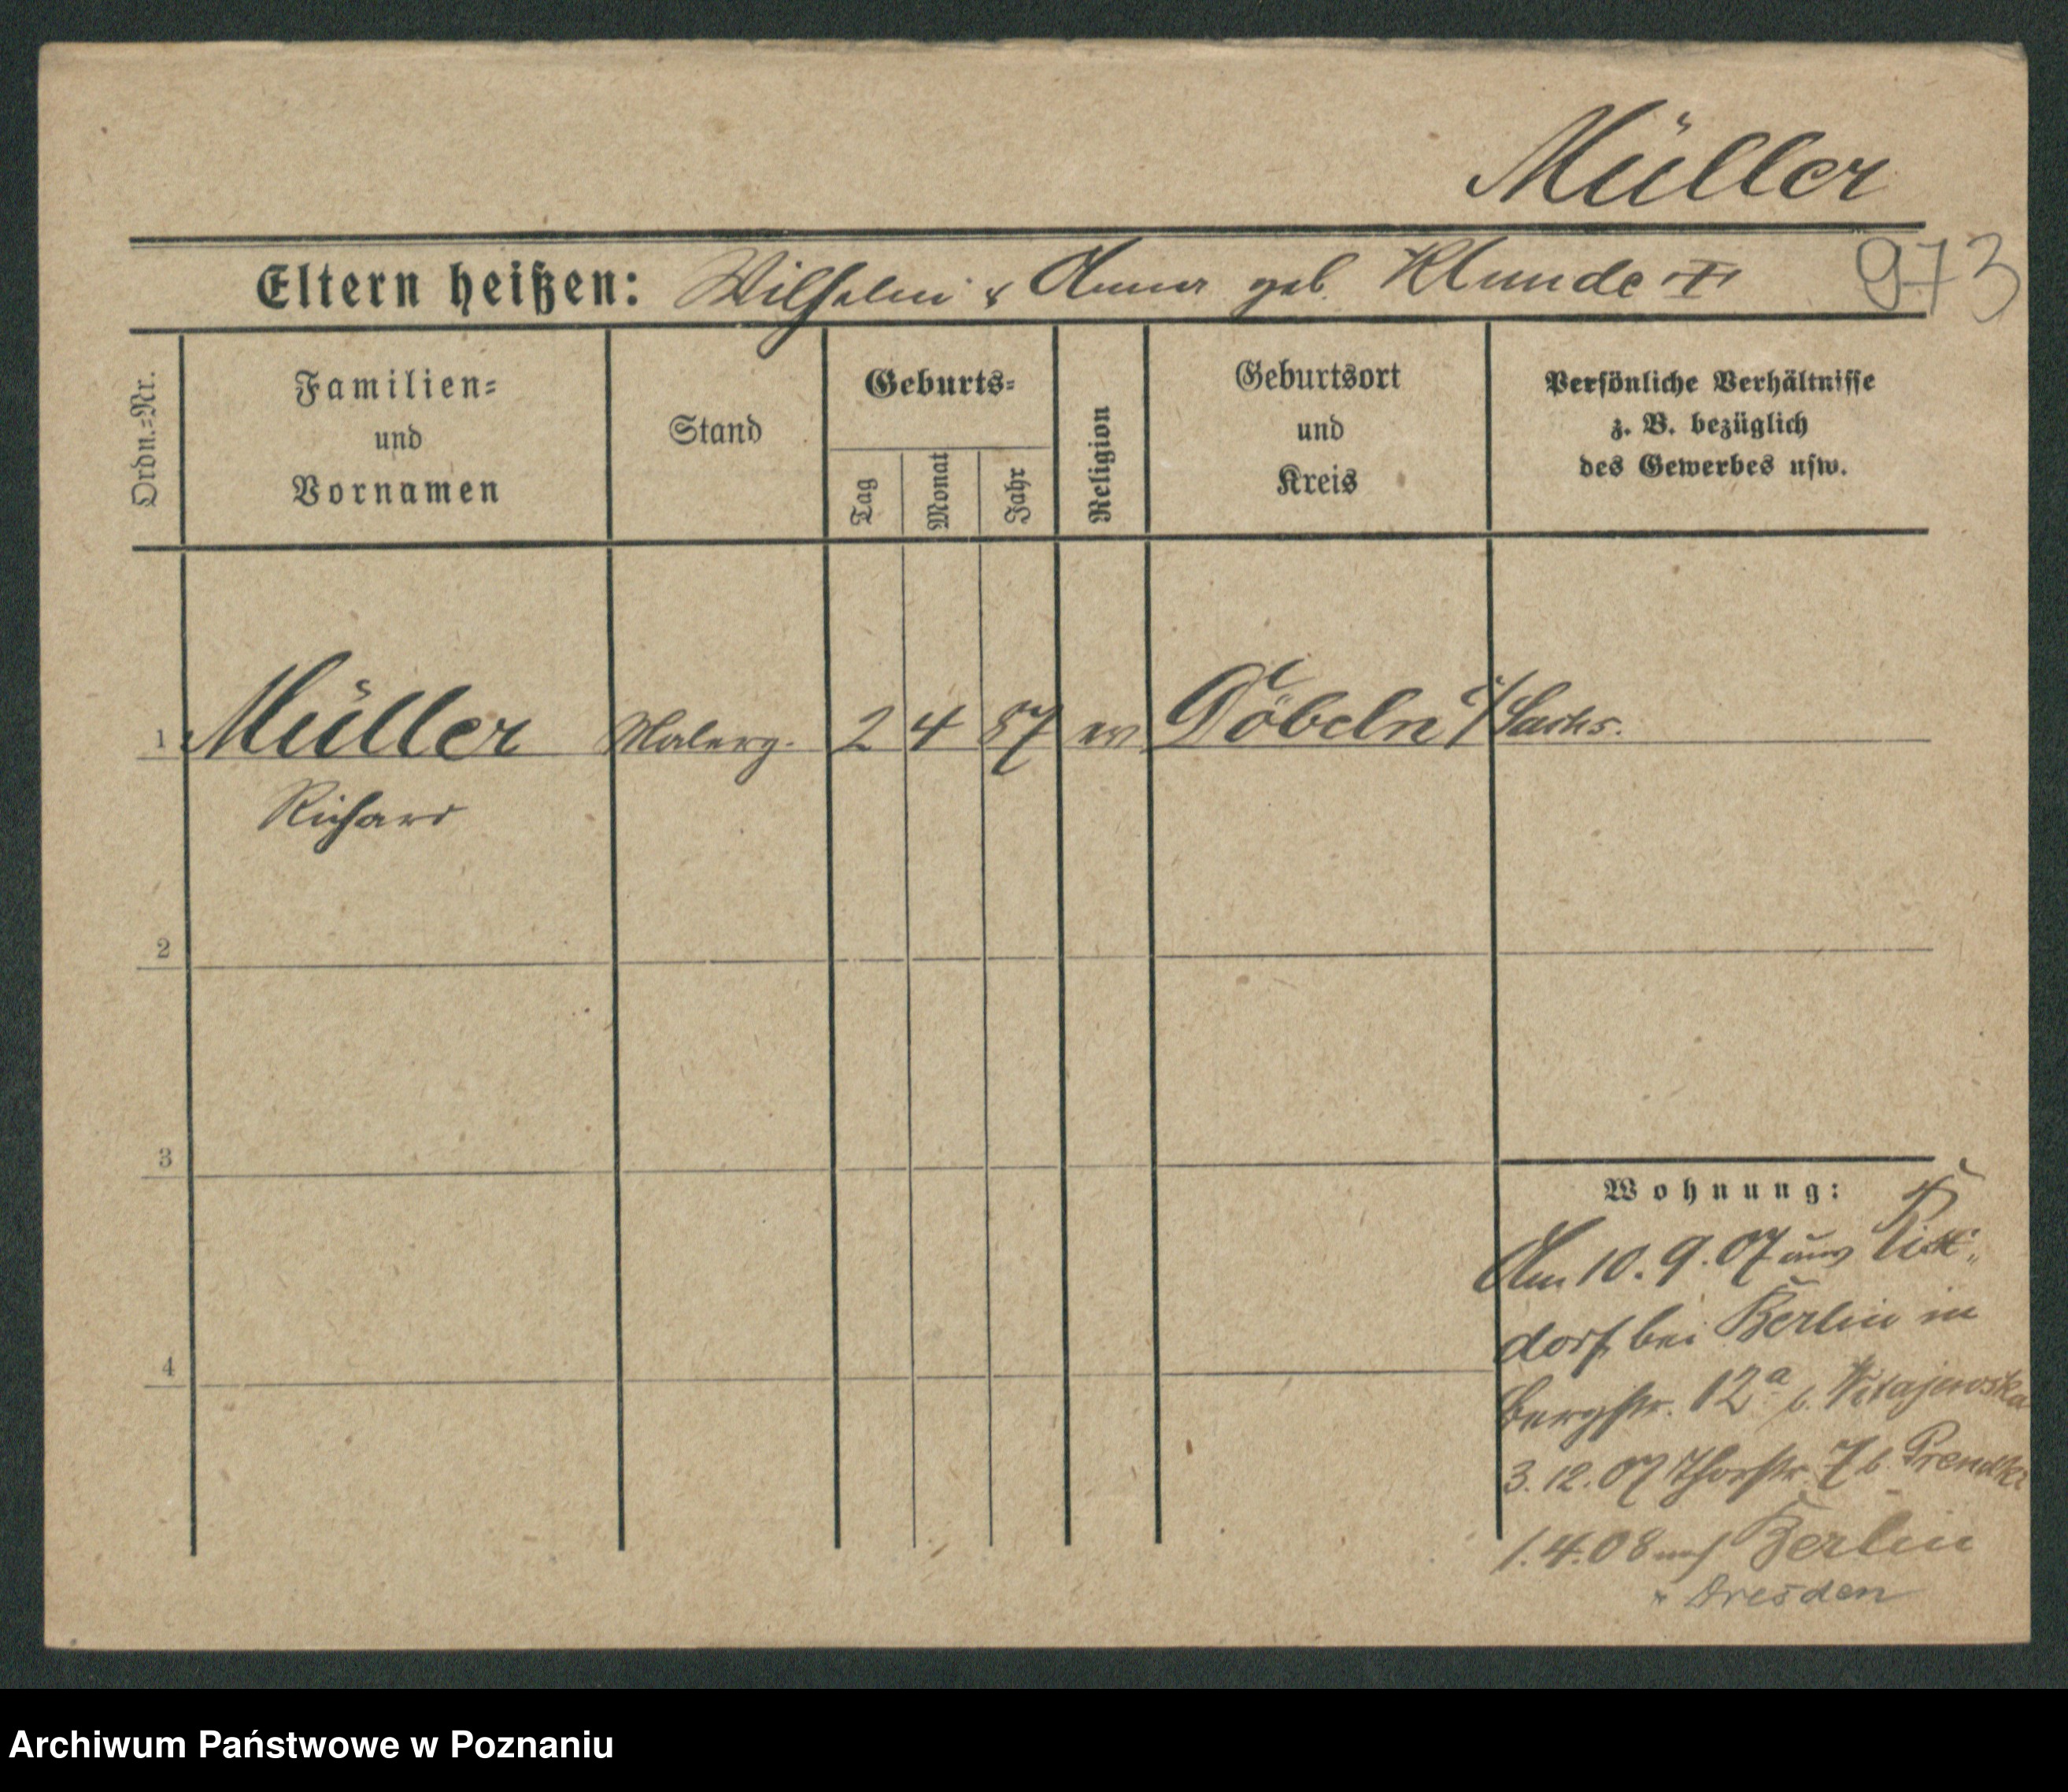 Müller
Eltern heißen: Wilhelm & Anna geb. Klunde
973
Ordn.-Nr. Familien- und Vornamen Stand Geburts- Tag Monat Jahr Religion Geburtsort und Kreis Persönliche Verhältnisse z. B. bezüglich des Gewerbes usw.
1 Müller Malerg. 2 4 87 ev Döbeln i/Sachs.
Richard
2
3
4
Wohnung:
Am 10.9.07 aus Rix-
dorf bei Berlin in
Bergstr. 12a b.
3.12.07 Thorstr. 7 b.
1.4.08 nach Berlin
" Dresden
Archiwum Państwowe w Poznaniu